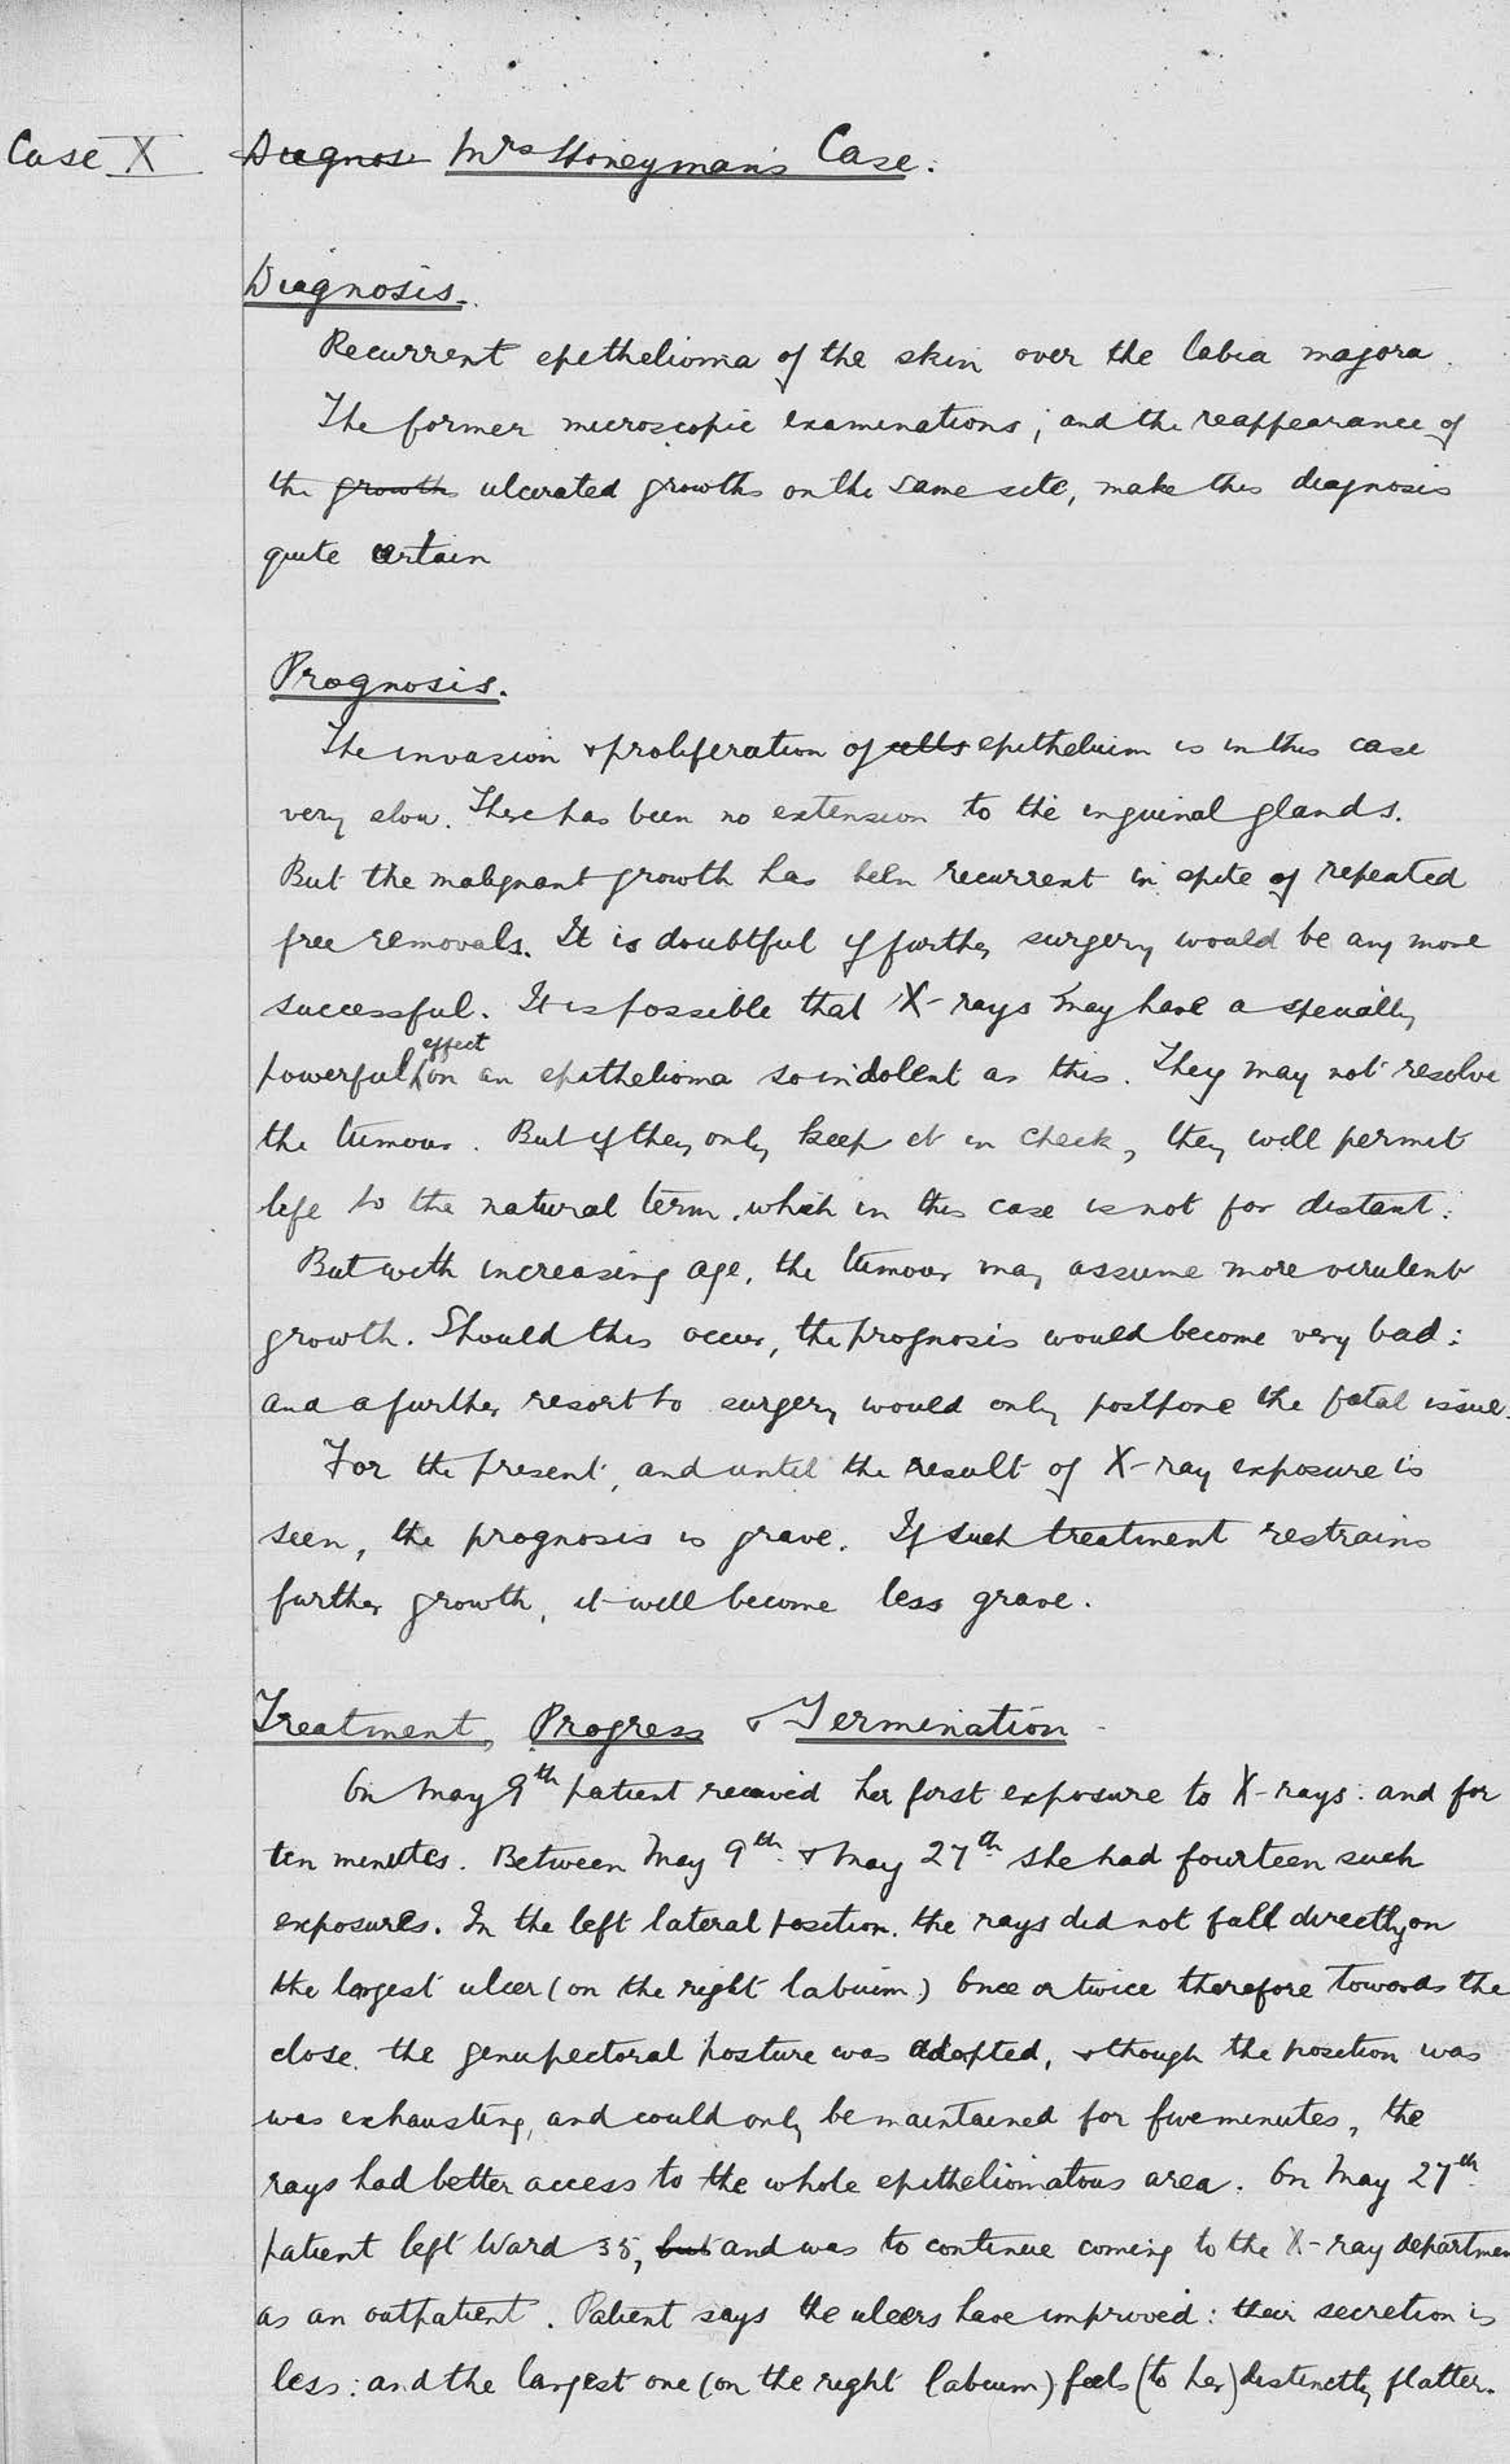 Case X Diagnos Mrs Honeyman's Case.
Diagnosis.
Recurrent epithelioma of the skin over the labia majora.
The former microscopic examinations, and the reappearance of
the growths ulcerated growths on the same site, make this diagnosis
quite certain
Prognosis.
The invasion & proliferation of cells epithelium is in this case
very slow. There has been no extension to the inguinal glands.
But the malignant growth has been recurrent in spite of repeated
free removals. It is doubtful if further surgery would be any more
successful. It is possible that X-rays may have a specially
powerful effect on an epithelioma so indolent as this. They may not resolve
the tumour. But if they only keep it in check, they will permit
life to the natural term, which in this case is not far distant.
But with increasing age, the tumour may assume more virulent
growth. Should this occur, the prognosis would become very bad:
and a further resort to surgery would only postpone the fatal issue.
For the present, and until the result of X-ray exposure is
seen, the prognosis is grave. If such treatment restrains
further growth, it will become less grave.
Treatment, Progress & Termination
On May 9th patient received her first exposure to X-rays: and for
ten minutes. Between May 9th & May 27th she had fourteen such
exposures. In the left lateral position, the rays did not fall directly on
the largest ulcer (on the right labium) Once or twice therefore towards the
close, the genupectoral posture was adopted, & though the position was
was exhausting, and could only be maintained for five minutes, the
rays had better access to the whole epitheliomatous area. On May 27th
patient left Ward 35, but and was to continue coming to the X-ray departmen
as an outpatient. Patient says the ulcers have improved: their secretion is
less: and the largest one (on the right labium) feels (to her) distinctly flatter.